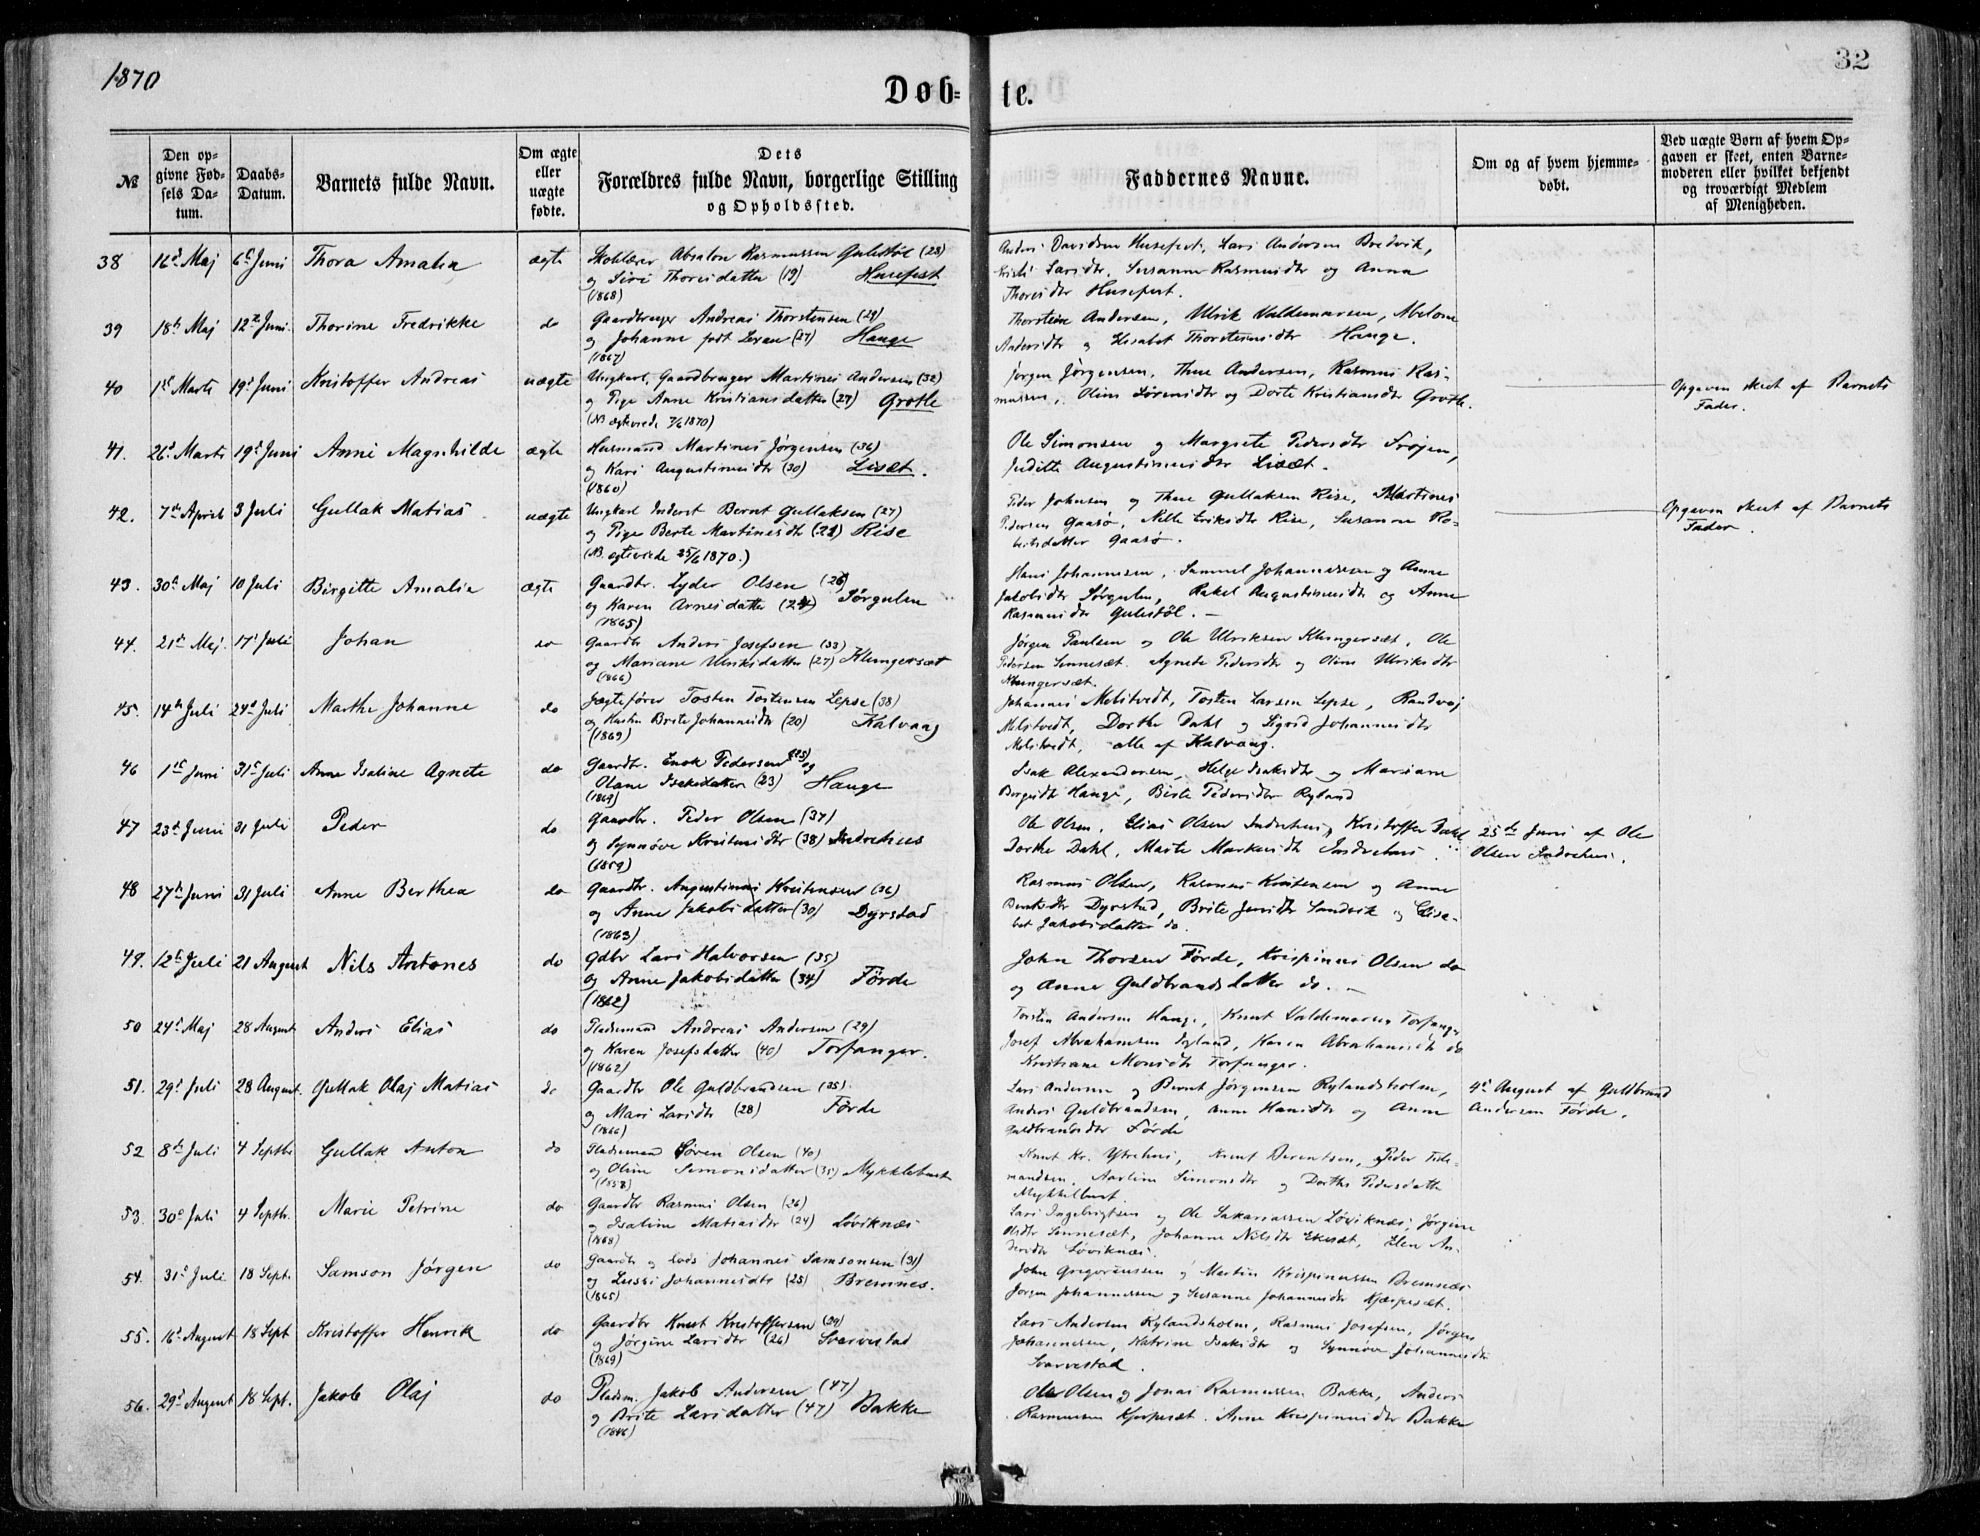 1870
32
Døb-te.
№
Den op-
givne Fød-
sels Da-
tum.
Daabs-
Datum.
Barnets fulde Navn.
Om ægte
eller
uægte
fødte.
Dets
Forældres fulde Navn, borgerlige Stilling
og Opholdssted.
Faddernes Navne.
Om og af hvem hjemme-
døbt.
Ved uægte Børn af hvem Op-
gaven er skeet, enten Barne-
moderen eller hvilket bekjendt
og troværdigt Medlem
af Menigheden.
38 16d Maj 6t Juni Thora Amalia ægte Absalon Rasmussen Gulestøl (23)
og Siri Thoresdatter (19) Husefest
(1868)
Anders Davidsen Husefest, Lars Andersen Bredvik,
Larsdtr, Susanne Rasmusdtr og Anna
Thoresdtr Husefest.
39 18de Maj 12te Juni Thorine Fredrikke do Gaardbruger Andreas Thorstensen (29)
og Johanne født (27) Hauge
(1867)
Thorsteine Andersen, Ulrik Valdemarsen, Abelone
Andersdtr og Elisabet Thorsteinsdtr Hauge.
40 1st Marts 19d Juni Kristoffer Andreas uægte Ungkarl, Gaardbruger Martines Andersen (32)
og Pige Anne Kristiansdatter (27) Grotle
(NB ægteviede 7/6 1870)
Jørgen Jørgensen, Thue Andersen, Rasmus Ras-
mussen, Oline Sørensdtr og Dorte Kristiansdtr Grotle.
Opgaven skeet af Barnets
Fader.
41. 26d Marts 19d Juni Anne Magnhilde ægte Husmand Martines Jørgensen (36)
og Kari Augustinusdtr (30) Lisæt.
(1860)
Ole Simonsen og Margrete Pedersdtr Frøjen,
Juditte Augustinusdtr Lisæt.
42. 7de April 3 Juli Gullak Matias uægte Ungkarl Inderst Bernt Gullaksen (27)
og Pige Berte Martinesdtr (21) Rise
(NB. ægteviede 25/6 1870.)
Peder Johnsen og Thue Gullaksen Rise, Martines
Pedersen Gaasø, Nille Eriksdtr Rise, Susanne Ro-
bertsdatter Gaasø.
Opgaven skeet af Barnets
Fader.
43. 30te Maj 10 Juli Birgitte Amalia ægte Gaardbr. Lyder Olsen (26)
og Karen Arnesdatter (24) Sørgulen
(1865)
Hans Johannesen, Samuel Johannessen og Anne
Jakobsdtr Sørgulen, Rakel Augustinusdtr og Anne
Rasmusdtr Gulestøl. —
44. 21de Maj. 17d Juli Johan do Gaardbr Anders Josefsen (33)
og Mariane Ulriksdatter (27) Klungersæt
(1866)
Jørgen Paulsen og Ole Ulriksen Klungersæt, Ole
Pedersen Sennesæt. Agnete Pedersdtr og Oline Ulriksdtr
Klungersæt.
45. 14de Juli 24d Juli Marthe Johanne do Jægtefører Tosten Tostensen Lepse (38)
og Hustru Brite Johannesdtr (20) Kalvaag
(1869)
Johannes Melstvedt, Tosten Larsen Lepse, Randvej
Melstvedt, Dorthe Dahl og Sigrid Johannesdtr
Melstvedt, alle af Kalvaag.
46 1st Juni 31t Juli Anne Isaline Agnete do Gaardbr. Enok Pedersen og
Olane Isaksdatter (23) Hauge
(1869)
Isak Alexandersen, Helge Isaksdtr og Mariane
Hauge, Birte Pedersdtr Ryland
47 23d Juni 31 Juli Peder do Gaardbr. Peder Olsen (37)
og Synnøve Kristensdtr (38) Indrehus
(1859)
Ole Olsen, Elias Olsen Indrehus, Kristoffer Dahl
Dorthe Dahl, Marte Markusdtr Indrehus.
25de Juni af Ole
Olsen Indrehus.
48 27de Juni 31 Juli Anne Berthea do Gaardbr. Augustinus Kristensen (36)
og Anne Jakobsdatter (30) Dyrstad
(1863)
Rasmus Olsen, Rasmus Kristensen og Anne
Bentsdtr Dyrstad, Brite Jensdtr Sandvik og Elisa-
bet Jakobsdatter do.
49. 12te Juli 21 August Nils Antones do Gdbr Lars Halvorsen (35)
og Anne Jakobsdatter (34) Førde
(1862)
John Thorsen Førde, Krispinus Olsen do
og Anne Guldbrandsdatter do. —
50 24d Maj 28 August Anders Elias do Pladsmand Andreas Andersen (29)
og Karen Josefsdatter (40) Torfanger.
(1862)
Torstein Andersen Hauge, Knut Valdemarsen Torfanger
Josef Abrahamsen Ryland, Karen Abrahamsdtr do
Kristiane Monsdtr Torfanger.
51. 29d Juli 28 August. Gullak Olaj Matias do Gaardbr Ole Guldbrandsen (35)
og Mari Larsdtr (28) Førde
(1866)
Lars Andersen og Bernt Jørgensen Rylandsholm,
Anders Guldbrandsen, Anne Hansdtr og Anne
Guldbrandsdtr Førde
4d August af Guldbrand
Andersen Førde.
52 8de Juli 4 Septbr Gullak Anton do Pladsmand Søren Olsen (40)
og Oline Simonsdatter (35) Myklebust
(1858)
Knut Kr. Ytrehus, Knut Berentsen, Peder Tide-
mandsen, Karline Simonsdtr og Dorthe Pedersdatter
Myklebust.
53. 30d Juli 4 Septbr. Marie Petrine do Gaardbr Rasmus Olsen (26)
og Isaline Matiasdtr (24) Løviknæs
(1868)
Lars Ingebrigtsen og Ole Sakariassen Løviknæs, Jørgine
Olsdtr Sennesæt, Johanne Nilsdtr Ekesæt, Elen An-
dersdtr Løviknæs.
54. 31d Juli 18 Sept. Samson Jørgen do Gaardbr og Lods Johannes Samsonsen (31)
og Lussi Johannesdtr (25) Bremnes.
(1865)
John Gregoriussen og Martin Krispinussen Bremnes
Jørgen Johannessen og Susanne Johannesdtr Kjærpesæt.
55. 16d August 18 Sept Kristoffer Henrik do Gaardbr Knut Kristoffersen (29)
og Jørgine Larsdtr (26) Svarvestad
(1869)
Lars Andersen Rylandsholm, Rasmus Josefsen, Jørgen
Johannessen, Katrine Isaksdtr og Synnøve Johannesdtr
Svarvestad.
56. 29d August 18 Sept. Jakob Olaj do Pladsm. Jakob Andersen (47)
og Brite Larsdatter (47) Bakke
(1846)
Ole Olsen og Jonas Rasmussen Bakke, Anders
Rasmussen Kjerpesæt. Anne Krispinusdtr Bakke